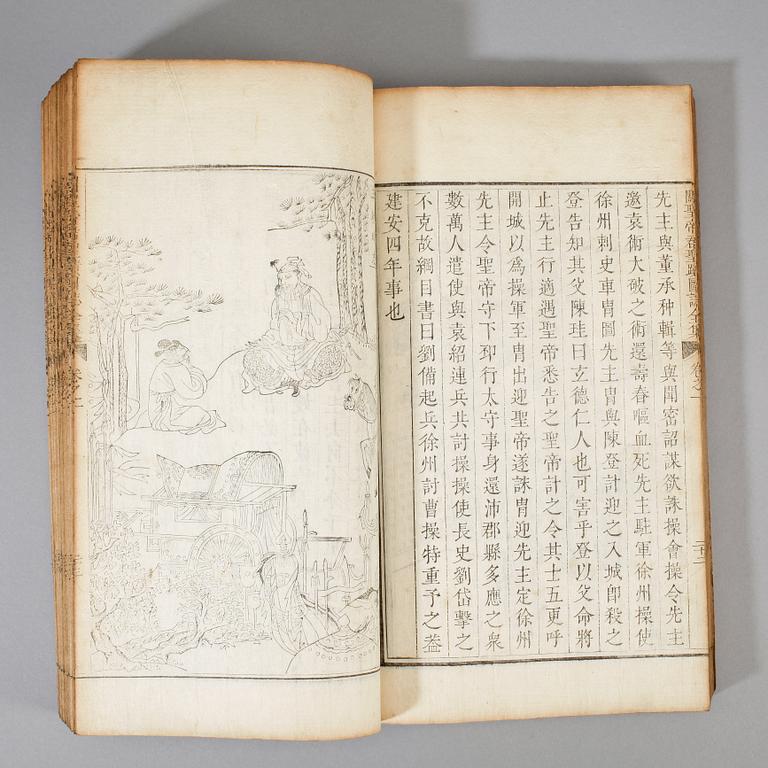 關聖帝君聖蹟圖誌全集
卷之一
先主與董承种輯等與聞密詔謀欲誅操會操令先主
邀袁術大破之術還壽春嘔血死先主駐軍徐州操使
徐州刺史車胄圖先主胄與陳登計迎之入城卽殺之
登告知其父陳珪曰玄德仁人也可害乎登以父命將
止先主行適遇聖帝悉告之聖帝計之令其士五更呼
開城以爲操軍至胄出迎聖帝遂誅胄迎先主定徐州
先主令聖帝守下邳行太守事身還沛郡縣多應之衆
數萬人遣使與袁紹連兵共討操操使長史劉岱擊之
不克故綱目書曰劉備起兵徐州討曹操特重予之益
建安四年事也